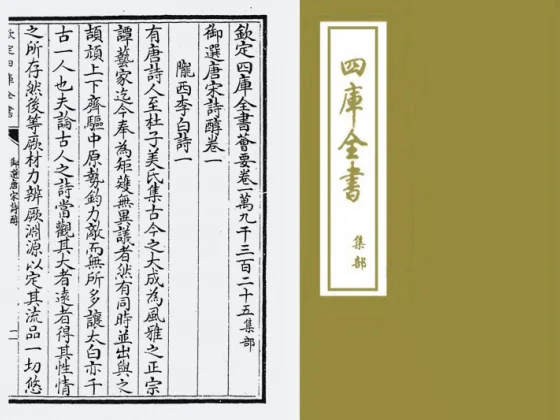 欽定四庫全書薈要卷一萬九千三百二十五集部
御選唐宋詩醇卷一
隴西李白詩一
有唐詩人至杜子美氏集古今之大成為風雅之正宗
譚藝家迄今奉為矩矱無異議者然有同時並出與之
頡頏上下齊驅中原勢鈞力敵而無所多讓太白亦千
古一人也夫論古人之詩當觀其大者遠者得其性情
之所存然後等厥材力辨厥淵源以定其流品一切悠
欽定四庫全書
御選唐宋詩醇
一
四庫全書
集部